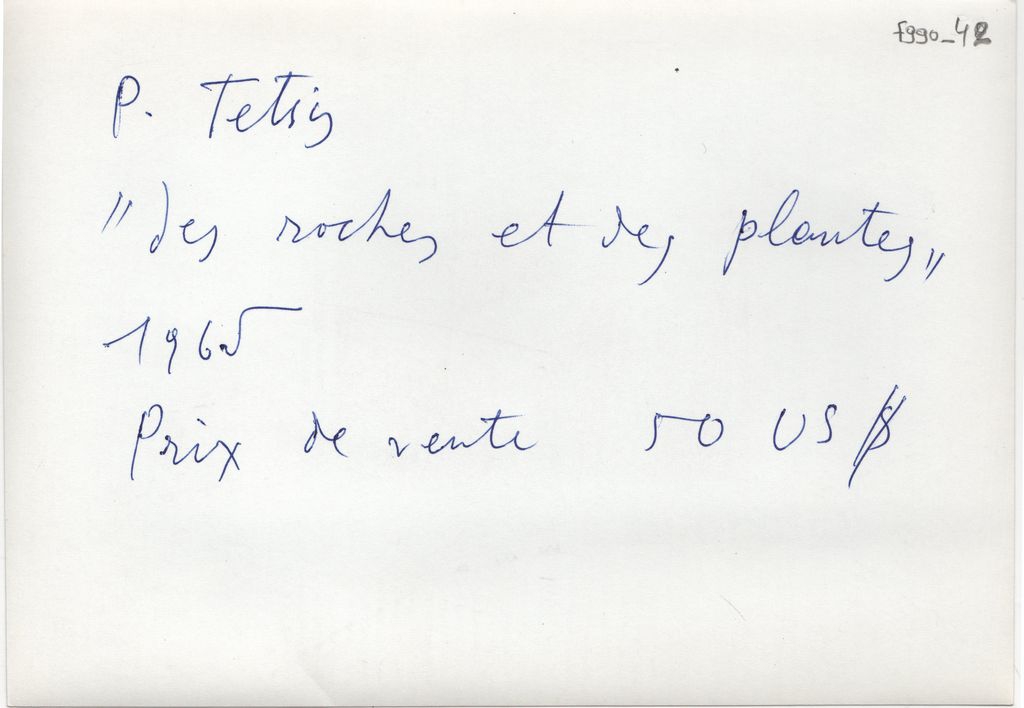 f990_42
P. Tetsis
"des roches et des plantes"
1965
Prix de vente 50 US $